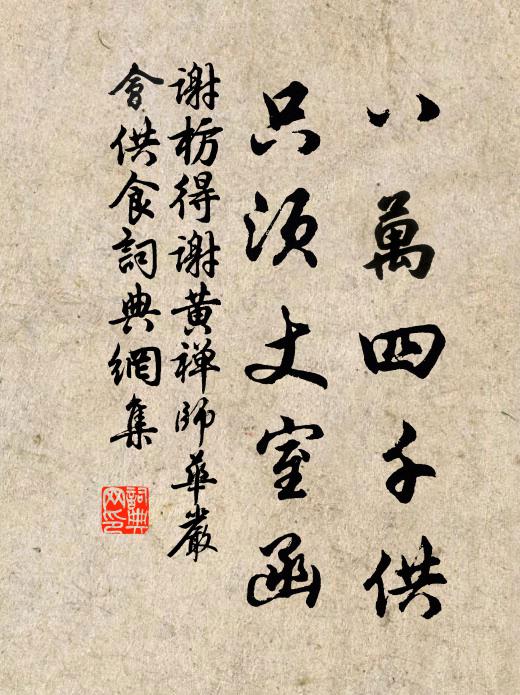 八萬四千供
只須丈室函
謝枋得謝黃禪師華嚴
會供食詞典網集
詞典網印